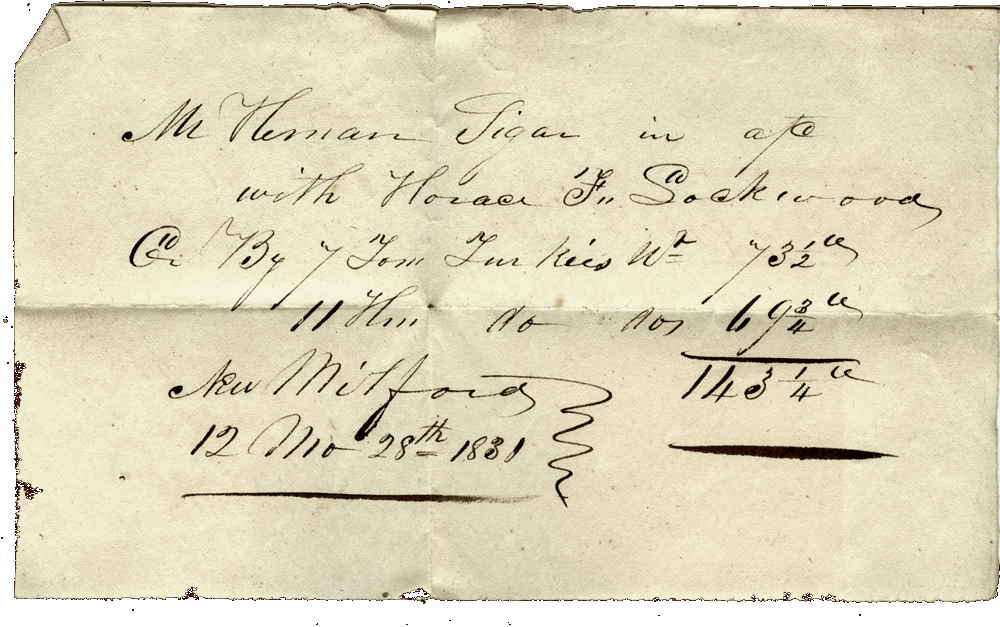 Mr Heman Sigar in a/c
with Horace F. Lockwood
Cr By 7 Tom Turkies Wt 73 1/2 lb
11 Hen do do 69 3/4 lb
143 1/4 lb
New Milford
12 Mo 28th 1831